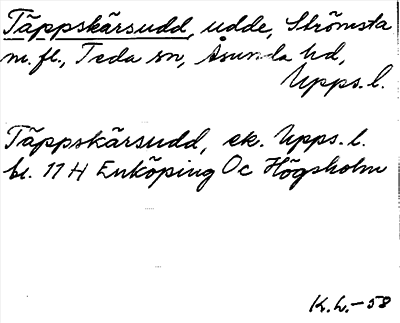 Täppskärsudd, udde, Strömsta
m. fl., Teda sn, Åsunda hd,
Upps. l.
Täppskärsudd, ek. Upps. l.
bl. 11 H Enköping Oc Högsholm
K. L. -58